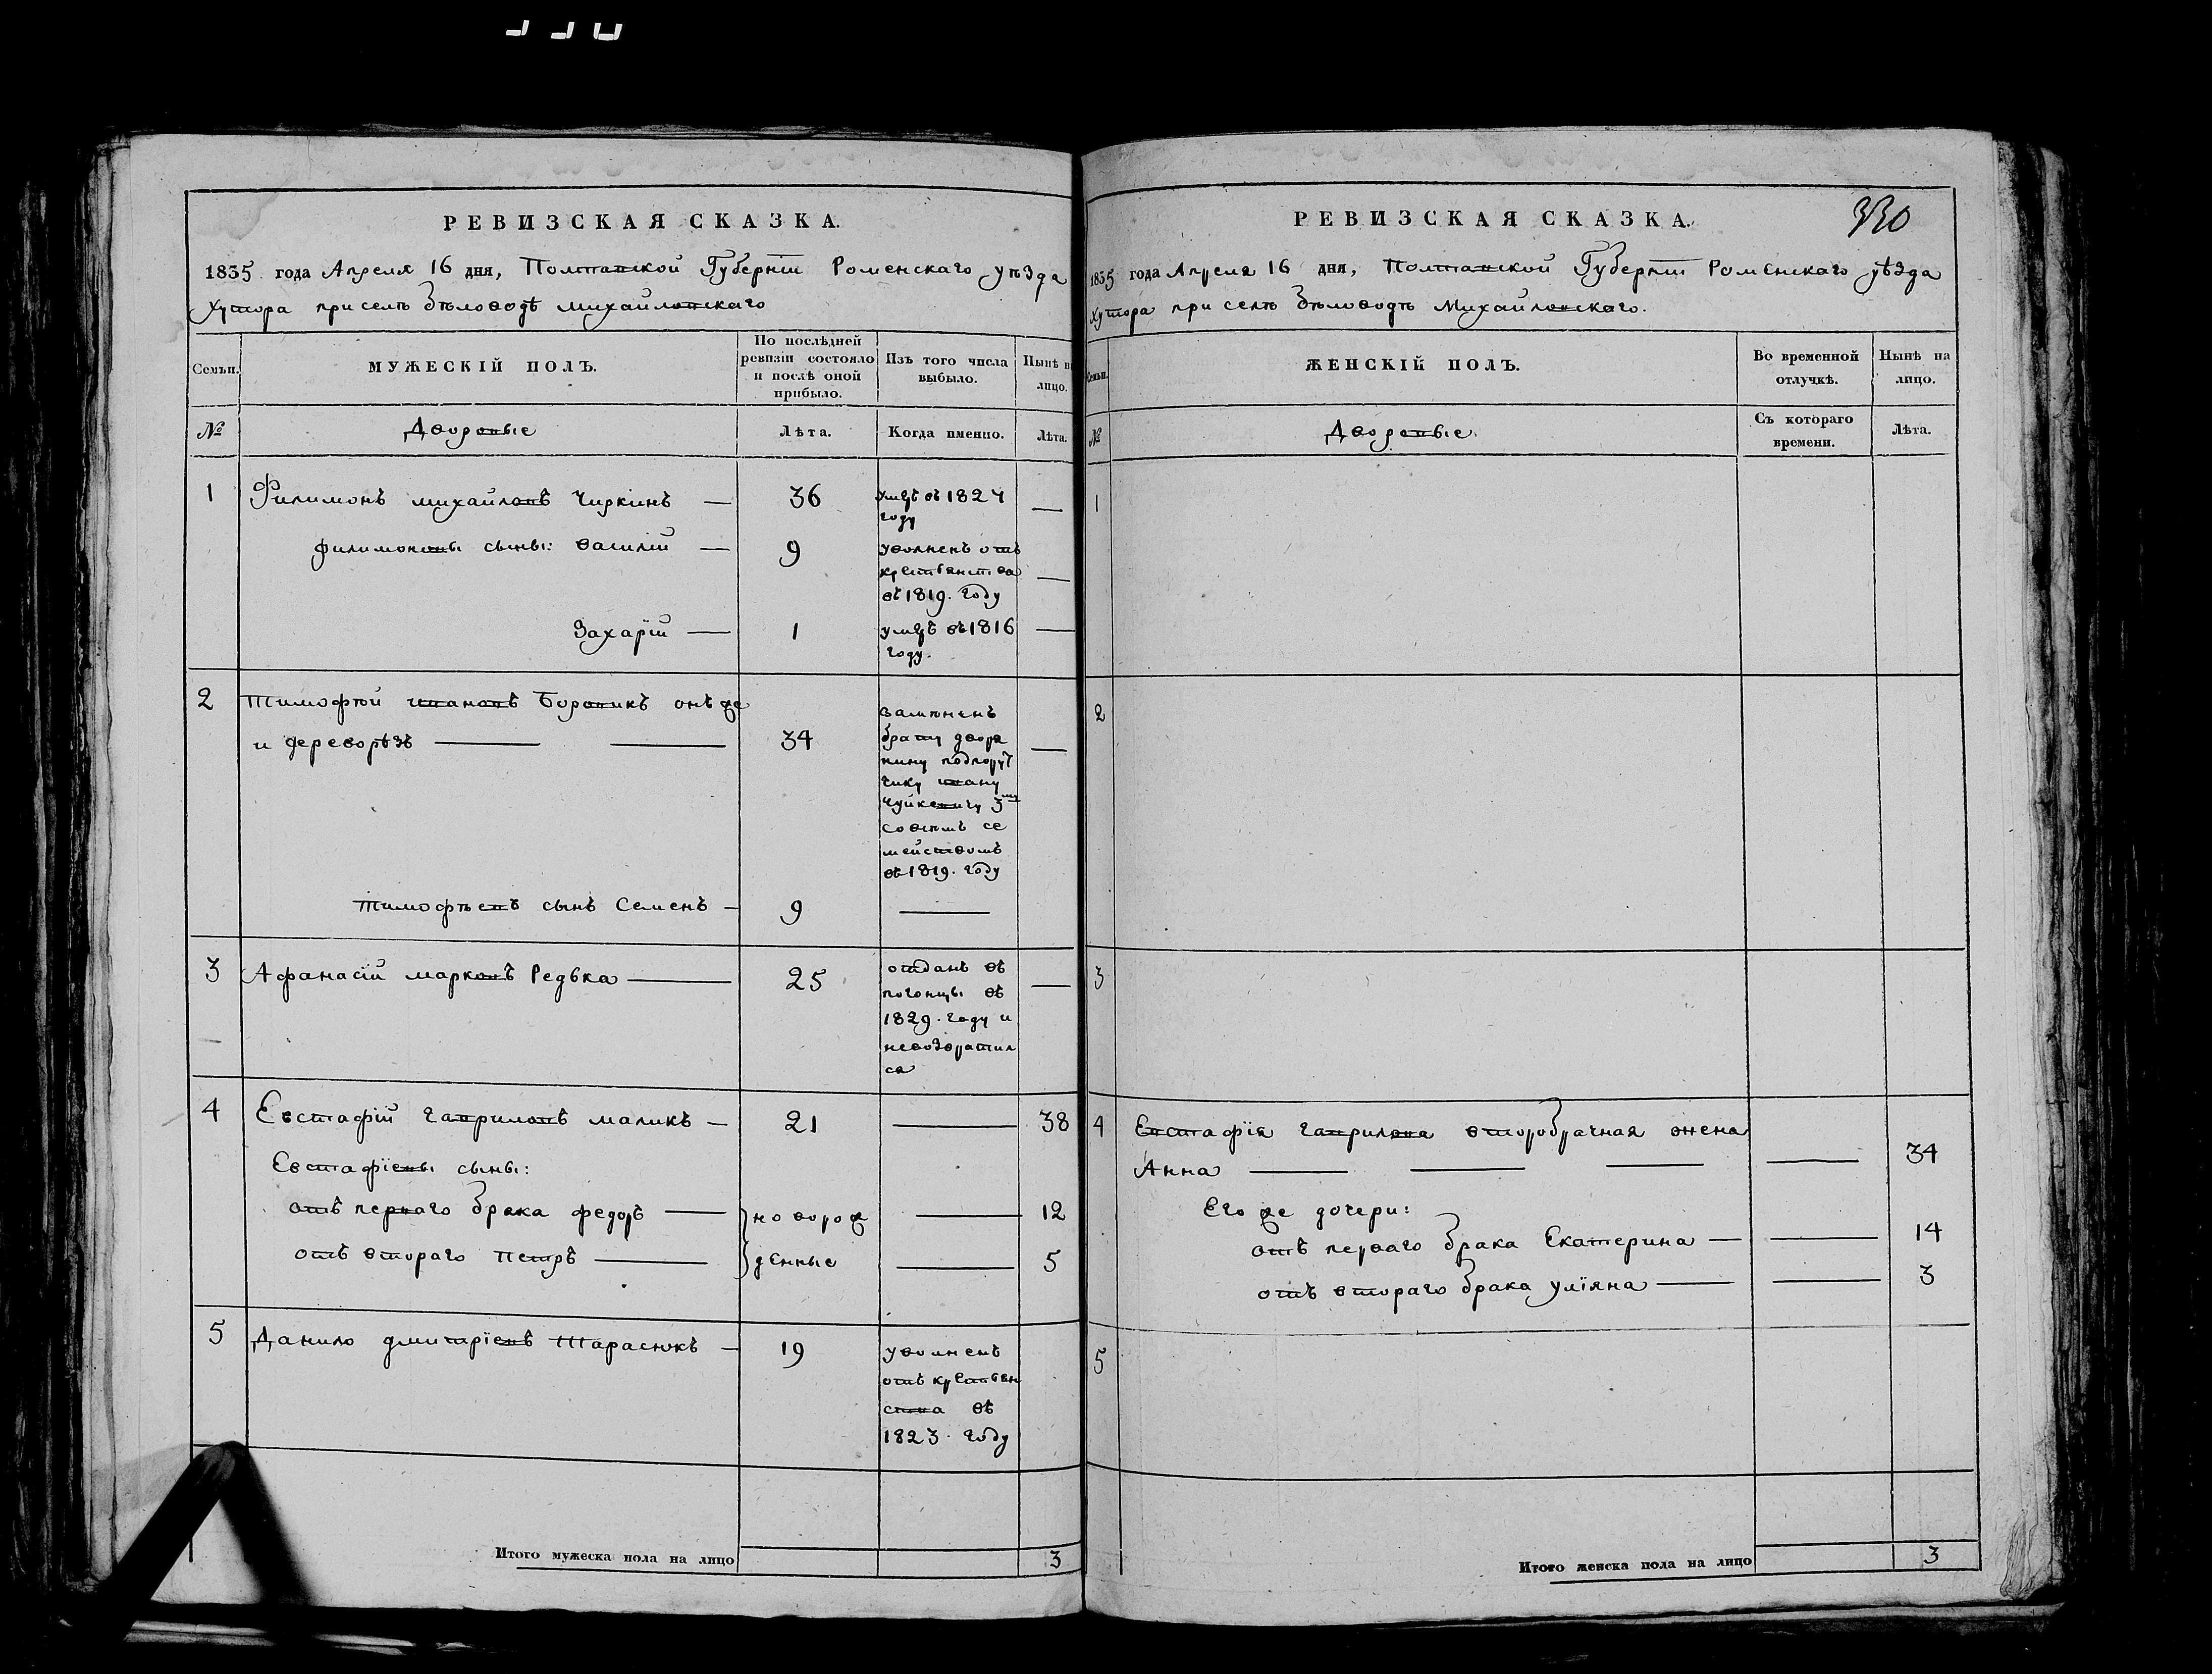 РЕВИЗСКАЯ СКАЗКА.
1835 года Апреля 16 дня, Полтавской Губерніи Роменскаго уѣзда
Хутора при селѣ Бѣловодѣ Михайловскаго
Семьи.
МУЖЕСКІЙ ПОЛЪ.
По послѣдней ревизіи состояло и послѣ оной прибыло.
Изъ того числа выбыло.
Нынѣ на лицо.
№
Дворовые
Лѣта.
Когда именно.
Лѣта.
1 Филимонъ михайловъ Чиркинъ — 36
умръ въ 1824
году
—
филимоновы сыны: василій — 9
уволненъ отъ
крестьянства
въ 1819. году
—
Захарій — 1
умръ въ 1816
году.
—
2 Тимофѣй ивановъ Боровикъ онъ же
и дереворѣзъ — — 34
замѣненъ
брату дворя
нину подпору
чику ивану
Чуйкевичу 3му
совсѣмъ се
мействомъ
въ 1819. году
—
Тимофѣевъ сынъ Семенъ — 9 —
3 Афанасій марковъ Редька — 25
отданъ въ
погонцы въ
1829. году и
невозвратил
ся
—
4 Евстафій гавриловъ маликъ — 21 — 38
Евстафіевы сыны:
отъ перваго брака федоръ — новорож — 12
отъ втораго Петръ — денные — 5
5 Данило дмитріевъ Тарасюкъ — 19
уволненъ
отъ крестьян
ства въ
1823. году
Итого мужеска пола на лицо 3
330
РЕВИЗСКАЯ СКАЗКА.
1835 года Апреля 16 дня, Полтавской Губерніи Роменскаго уѣзда
Хутора при селѣ Бѣловодѣ Михайловскаго.
Семьи.
ЖЕНСКІЙ ПОЛЪ.
Во временной отлучкѣ.
Нынѣ на лицо.
№
Дворовые
Съ котораго времени.
Лѣта.
1
2
3
4 Евстафія гаврилова второбрачная жена
Анна — — — — 34
Его же дочери:
отъ перваго брака Екатерина — — 14
отъ втораго брака уліяна — — 3
5
Итого женска пола на лицо 3